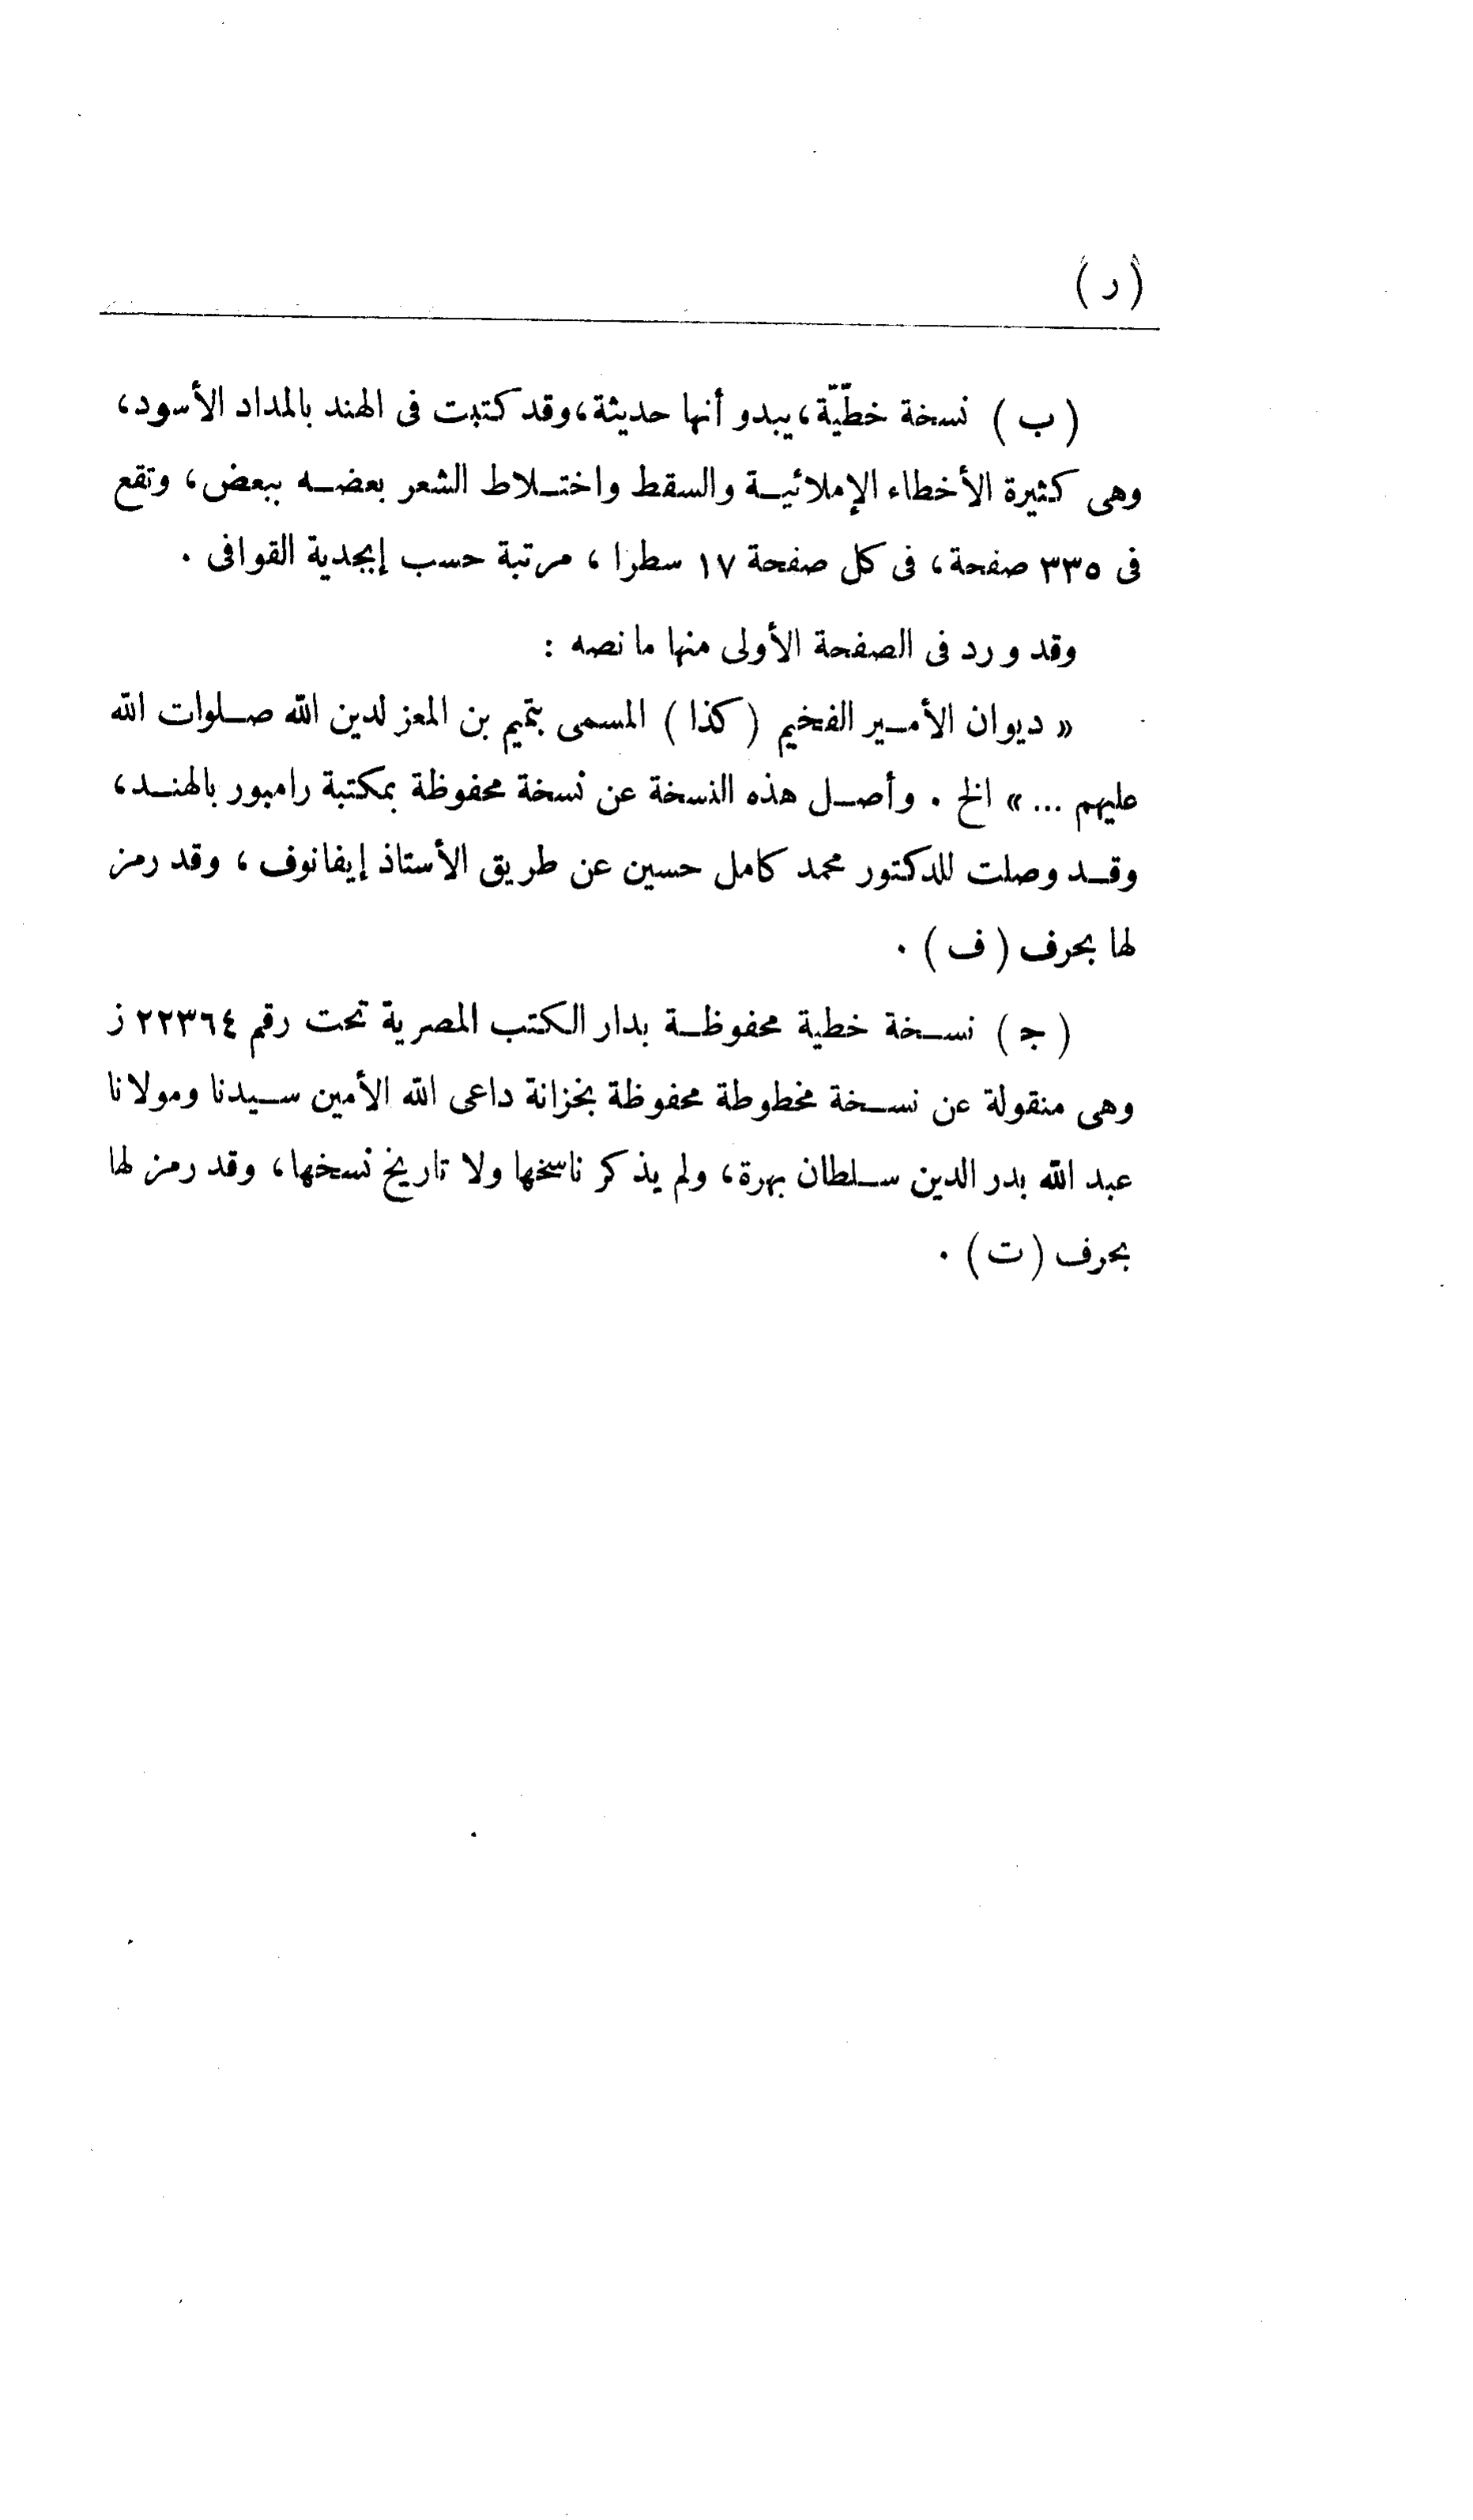 (د)
(ب) نسخة خطيّة، يبدو أنها حديثة، وقد كتبت فى الهند بالمداد الأسود،
وهى كثيرة الأخطاء الإملائيـة والسقط واختـلاط الشعر بعضـه ببعض، وتقع
فى ٣٣٥ صفحة، فى كل صفحة ١٧ سطرا، مرتبة حسب إبجدية القوافى .
وقد ورد فى الصفحة الأولى منها ما نصه :
« ديوان الأمـير الفخيم (كذا) المسمى بتميم بن المعز لدين الله صـلوات الله
عليهم ... » الخ . وأصـل هذه النسخة عن نسخة محفوظة بمكتبة رامبور بالهنـد،
وقـد وصلت للدكتور محمد كامل حسين عن طريق الأستاذ إيفانوف، وقد رمز
لها بحرف (ف) .
(جـ) نسـخة خطية محفوظـة بدار الكتب المصرية تحت رقم ٢٢٣٦٤ ز
وهى منقولة عن نسـخة مخطوطة محفوظة بخزانة داعى الله الأمين سـيدنا ومولانا
عبد الله بدر الدين سـلطان بهرة، ولم يذكر ناسخها ولا تاريخ نسخها، وقد رمز لها
بحرف (ت) .